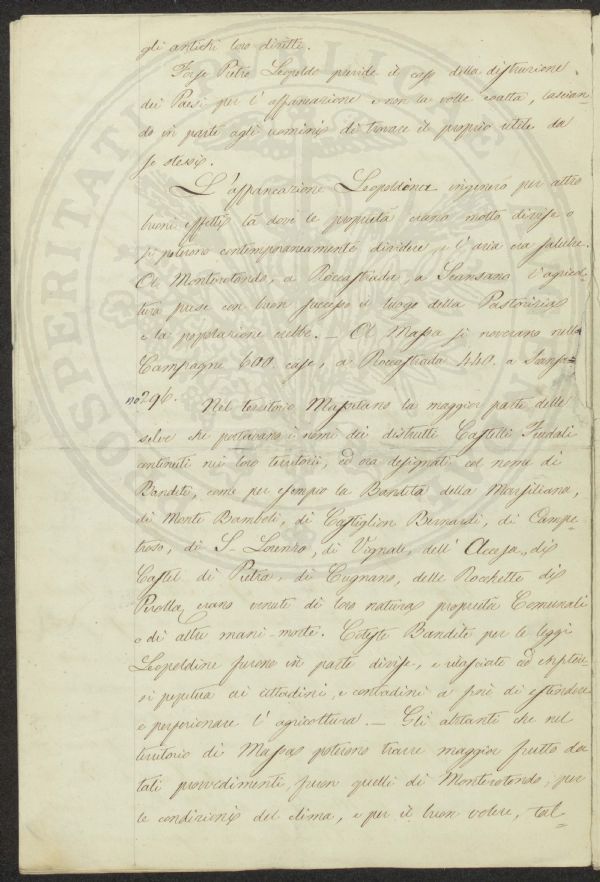 gli antichi loro diritti.
Forse Pietro Leopoldo previde il caso della distruzione
dei Paesi per l'affrancazione e non la volle coatta, lascian-
do in parte agli uomini di trarre il proprio utile da
se stessi.
L'affrancazione Leopoldina ingenerò per altro
buoni effetti là dove le proprietà erano molto divise o
si poterono contemporaneamente dividere, e l'aria era salubre.
A Monterotondo, a Roccastrada, a Scansano l'agricol-
tura prese con buon successo il luogo della Pastorizia
e la popolazione crebbe. — A Massa si noverano nella
Campagne 600 case, a Roccastrada 440. a Scansa=
no 296. Nel territorio Massetano la maggior parte delle
selve che portavano i nomi dei distrutti Castelli Feudali
contenuti nei loro territorii, ed ora designati col nome di
Bandite, come per esempio la Bandita della Marsiliana,
di Monte Bamboli, di Castiglion Bernardi, di Campe-
troso, di S. Lorenzo, di Vignale, dell'Accesa, di
Castel di Pietra, di Cugnano, delle Rocchette di
Perolla, erano venute di loro natura proprietà Comunali
o di altre mani-morte. Coteste Bandite per le leggi
Leopoldine furono in parte divise, e rilasciate ad enfiteu-
si perpetua ai cittadini, e contadini a fine di estendere
e perfezionare l'agricoltura. — Gli abitanti che nel
territorio di Massa poterono trarre maggior frutto da
tali provvedimenti, furon quelli di Monterotondo, per
le condizioni del clima, e per il buon volere, tal=
PROSPERITATI PUBLICAE